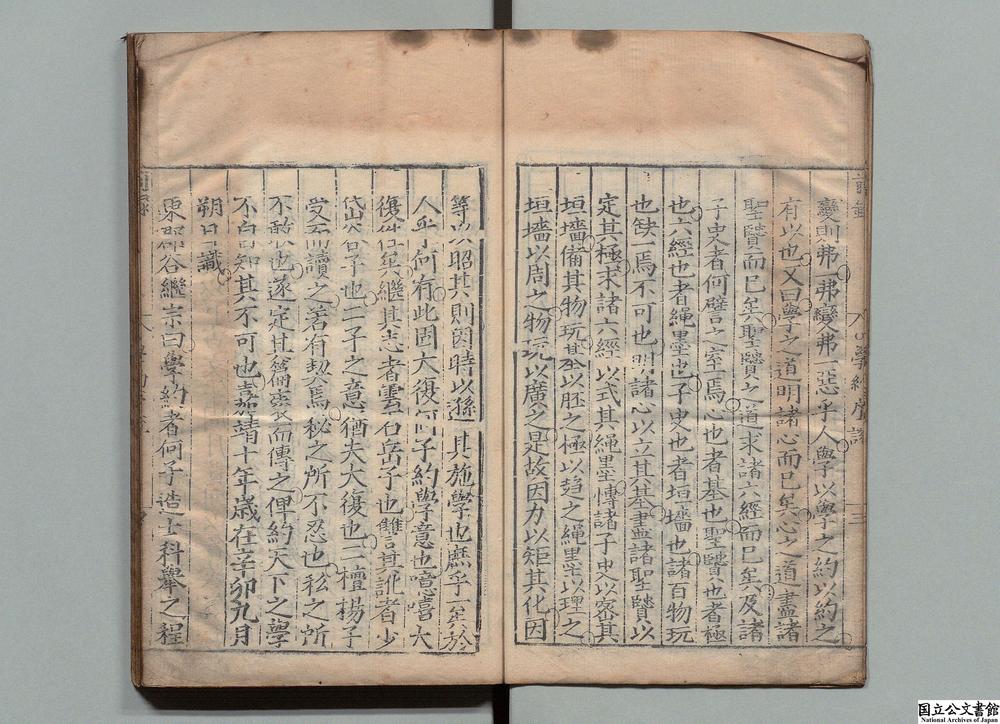 變則弗一弗變弗惡乎人學以學之約以約之
有以也又曰學之道明諸心而已矣心之道盡諸
聖賢而已矣聖賢之道求諸六經而已矣及諸
子史者何譬之室焉心也者基也聖賢也者極
也六經也者繩墨也子史也者垣墻也諸百物玩
也缺一焉不可也明諸心以立其基盡諸聖賢以
定其極求諸六經以式其繩墨慱諸子史以密其
垣墻備其物玩基以胚之極以趋之繩墨以理之
垣墻以周之物玩以廣之是故因力以矩其化因
等以昭其則因時以遜其施學也庶乎一矣於
人乎何有此固大復何子約學意也噫嘻大
復徃矣繼其志者雲石岳子也雙言其訓者少
岱谷子也二子之意猶夫大復也二檀楊子
受而讀之若有契焉秘之所不忍也私之所
不敢也遂定其篇袠而傳之俾約天下之學
不自知其不可也嘉靖十年歲在辛卯九月
朔日識
東郡谷繼宗曰學約者何子造士科舉之程
国立公文書館
National Archives of Japan